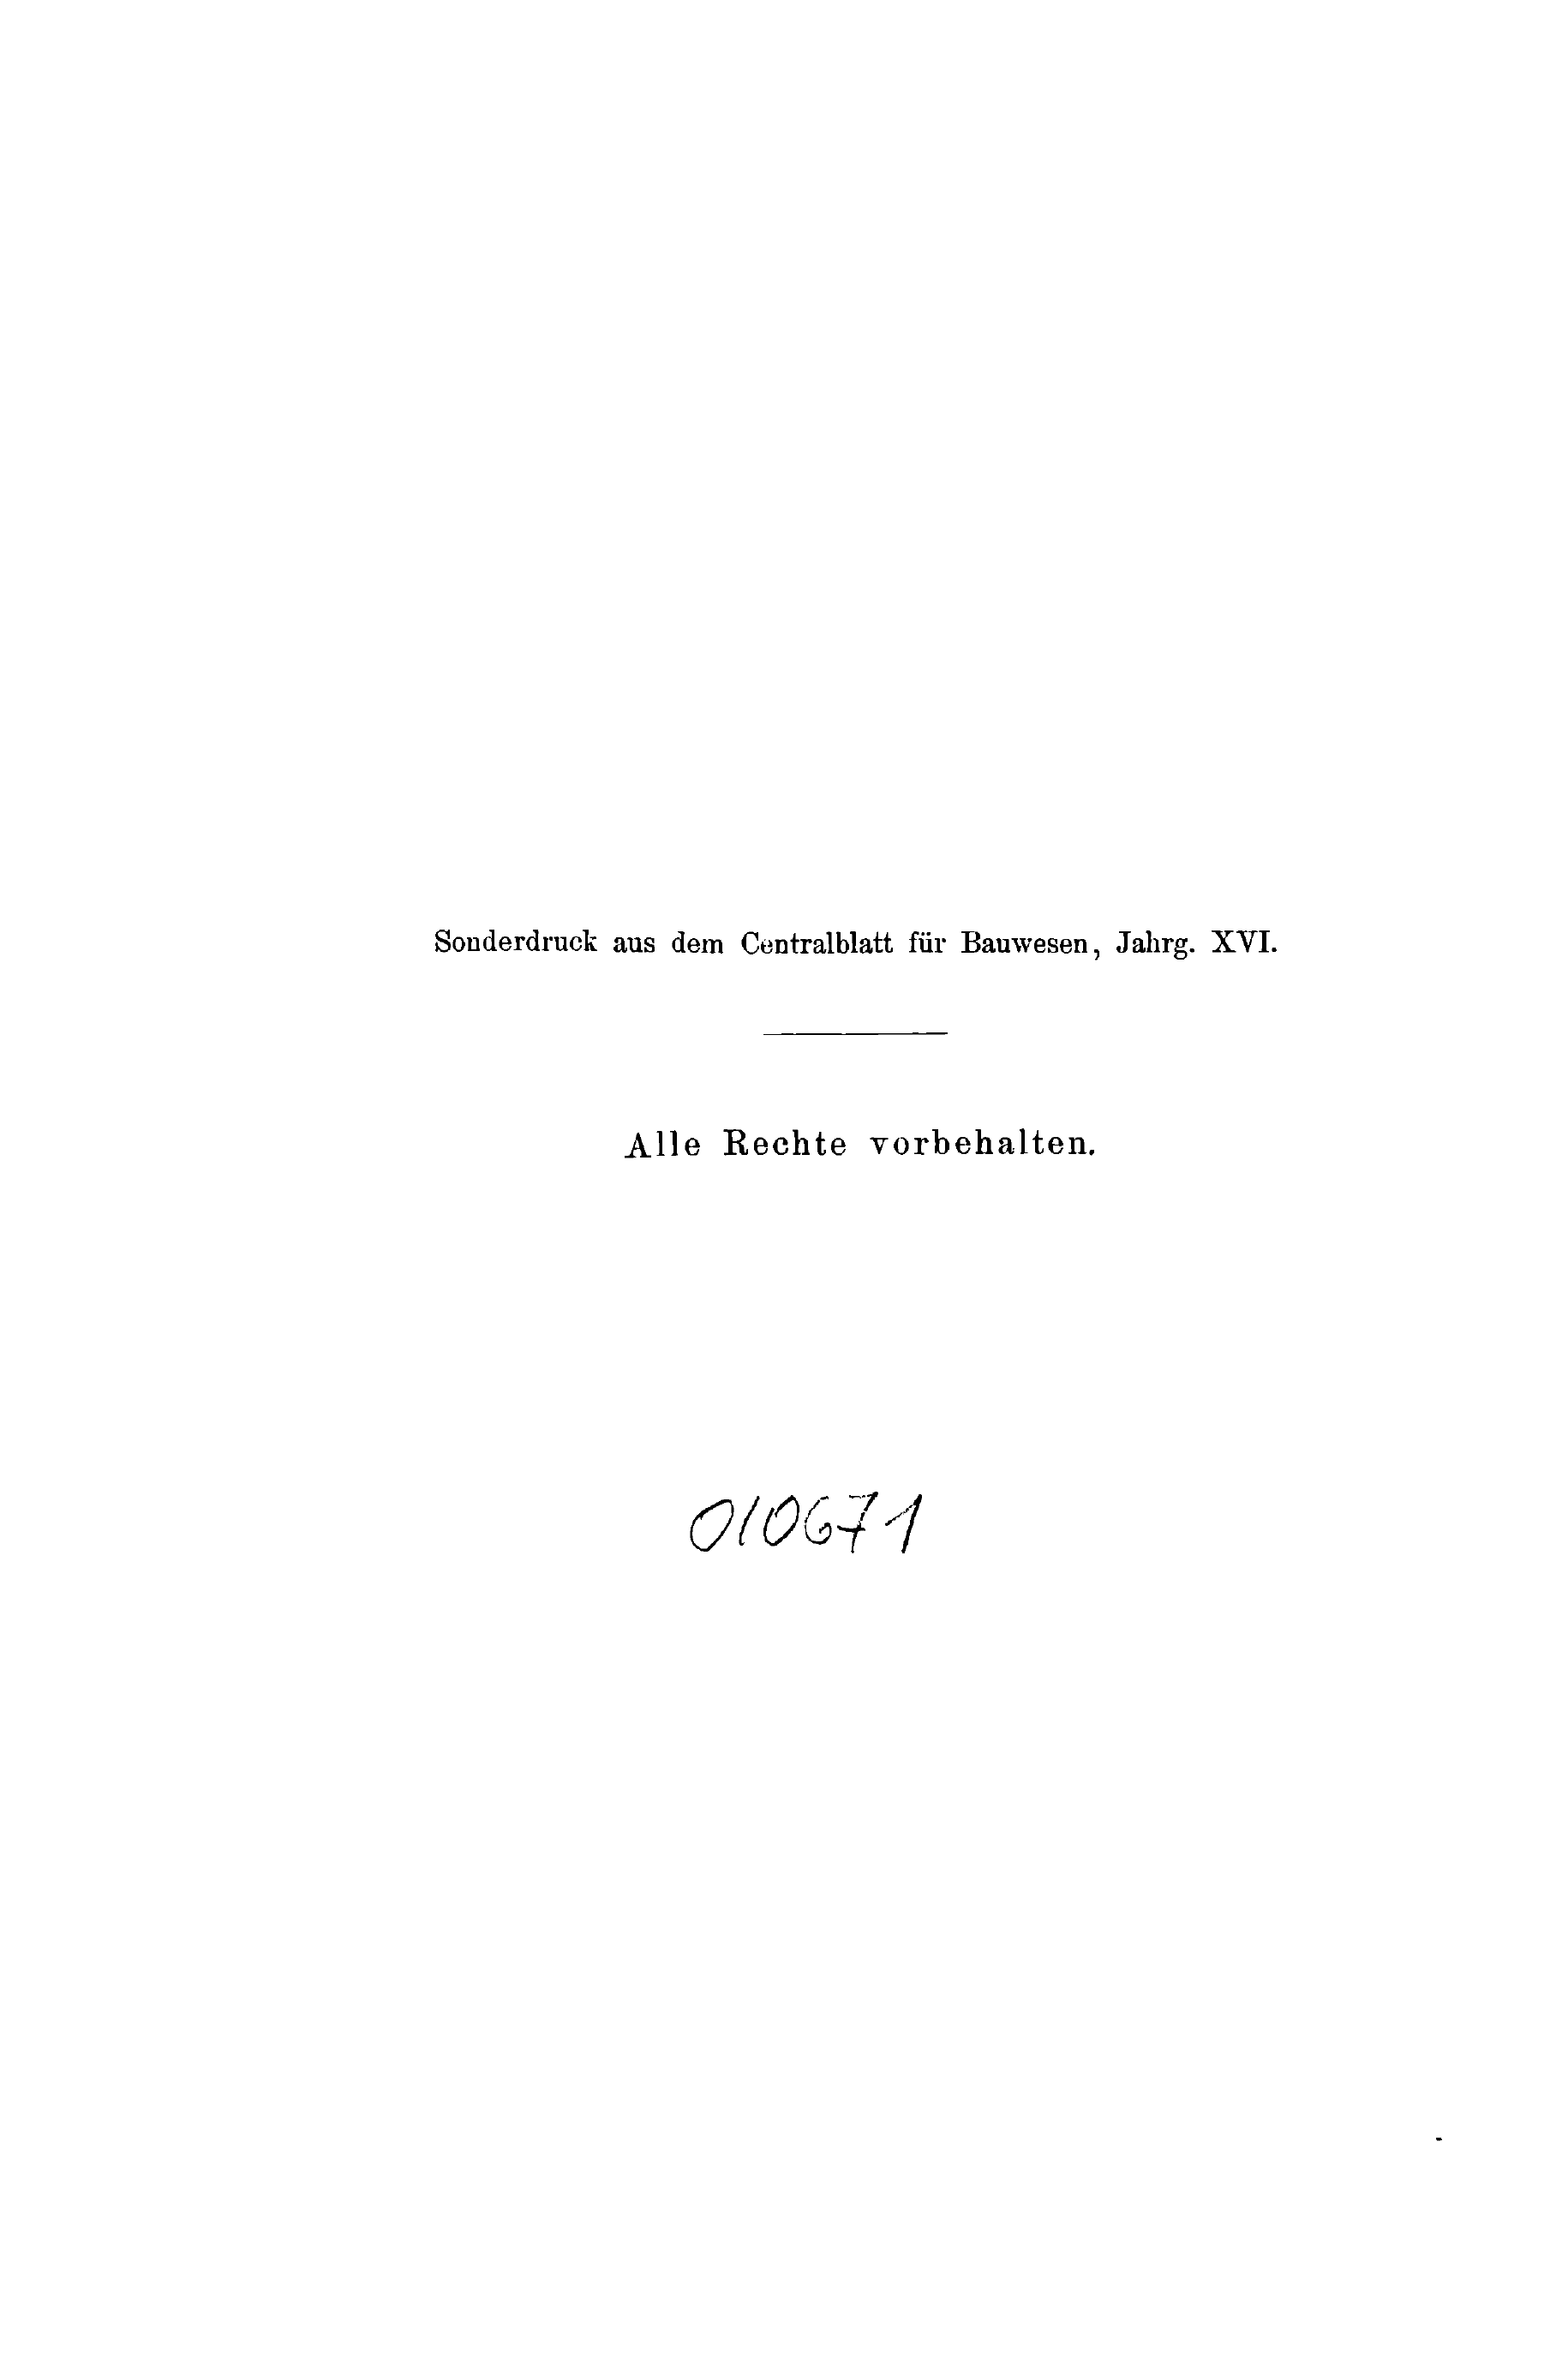 Sonderdruck aus dem Centralblatt für Bauwesen, Jahrg. XVI.
Alle Rechte vorbehalten.
010671